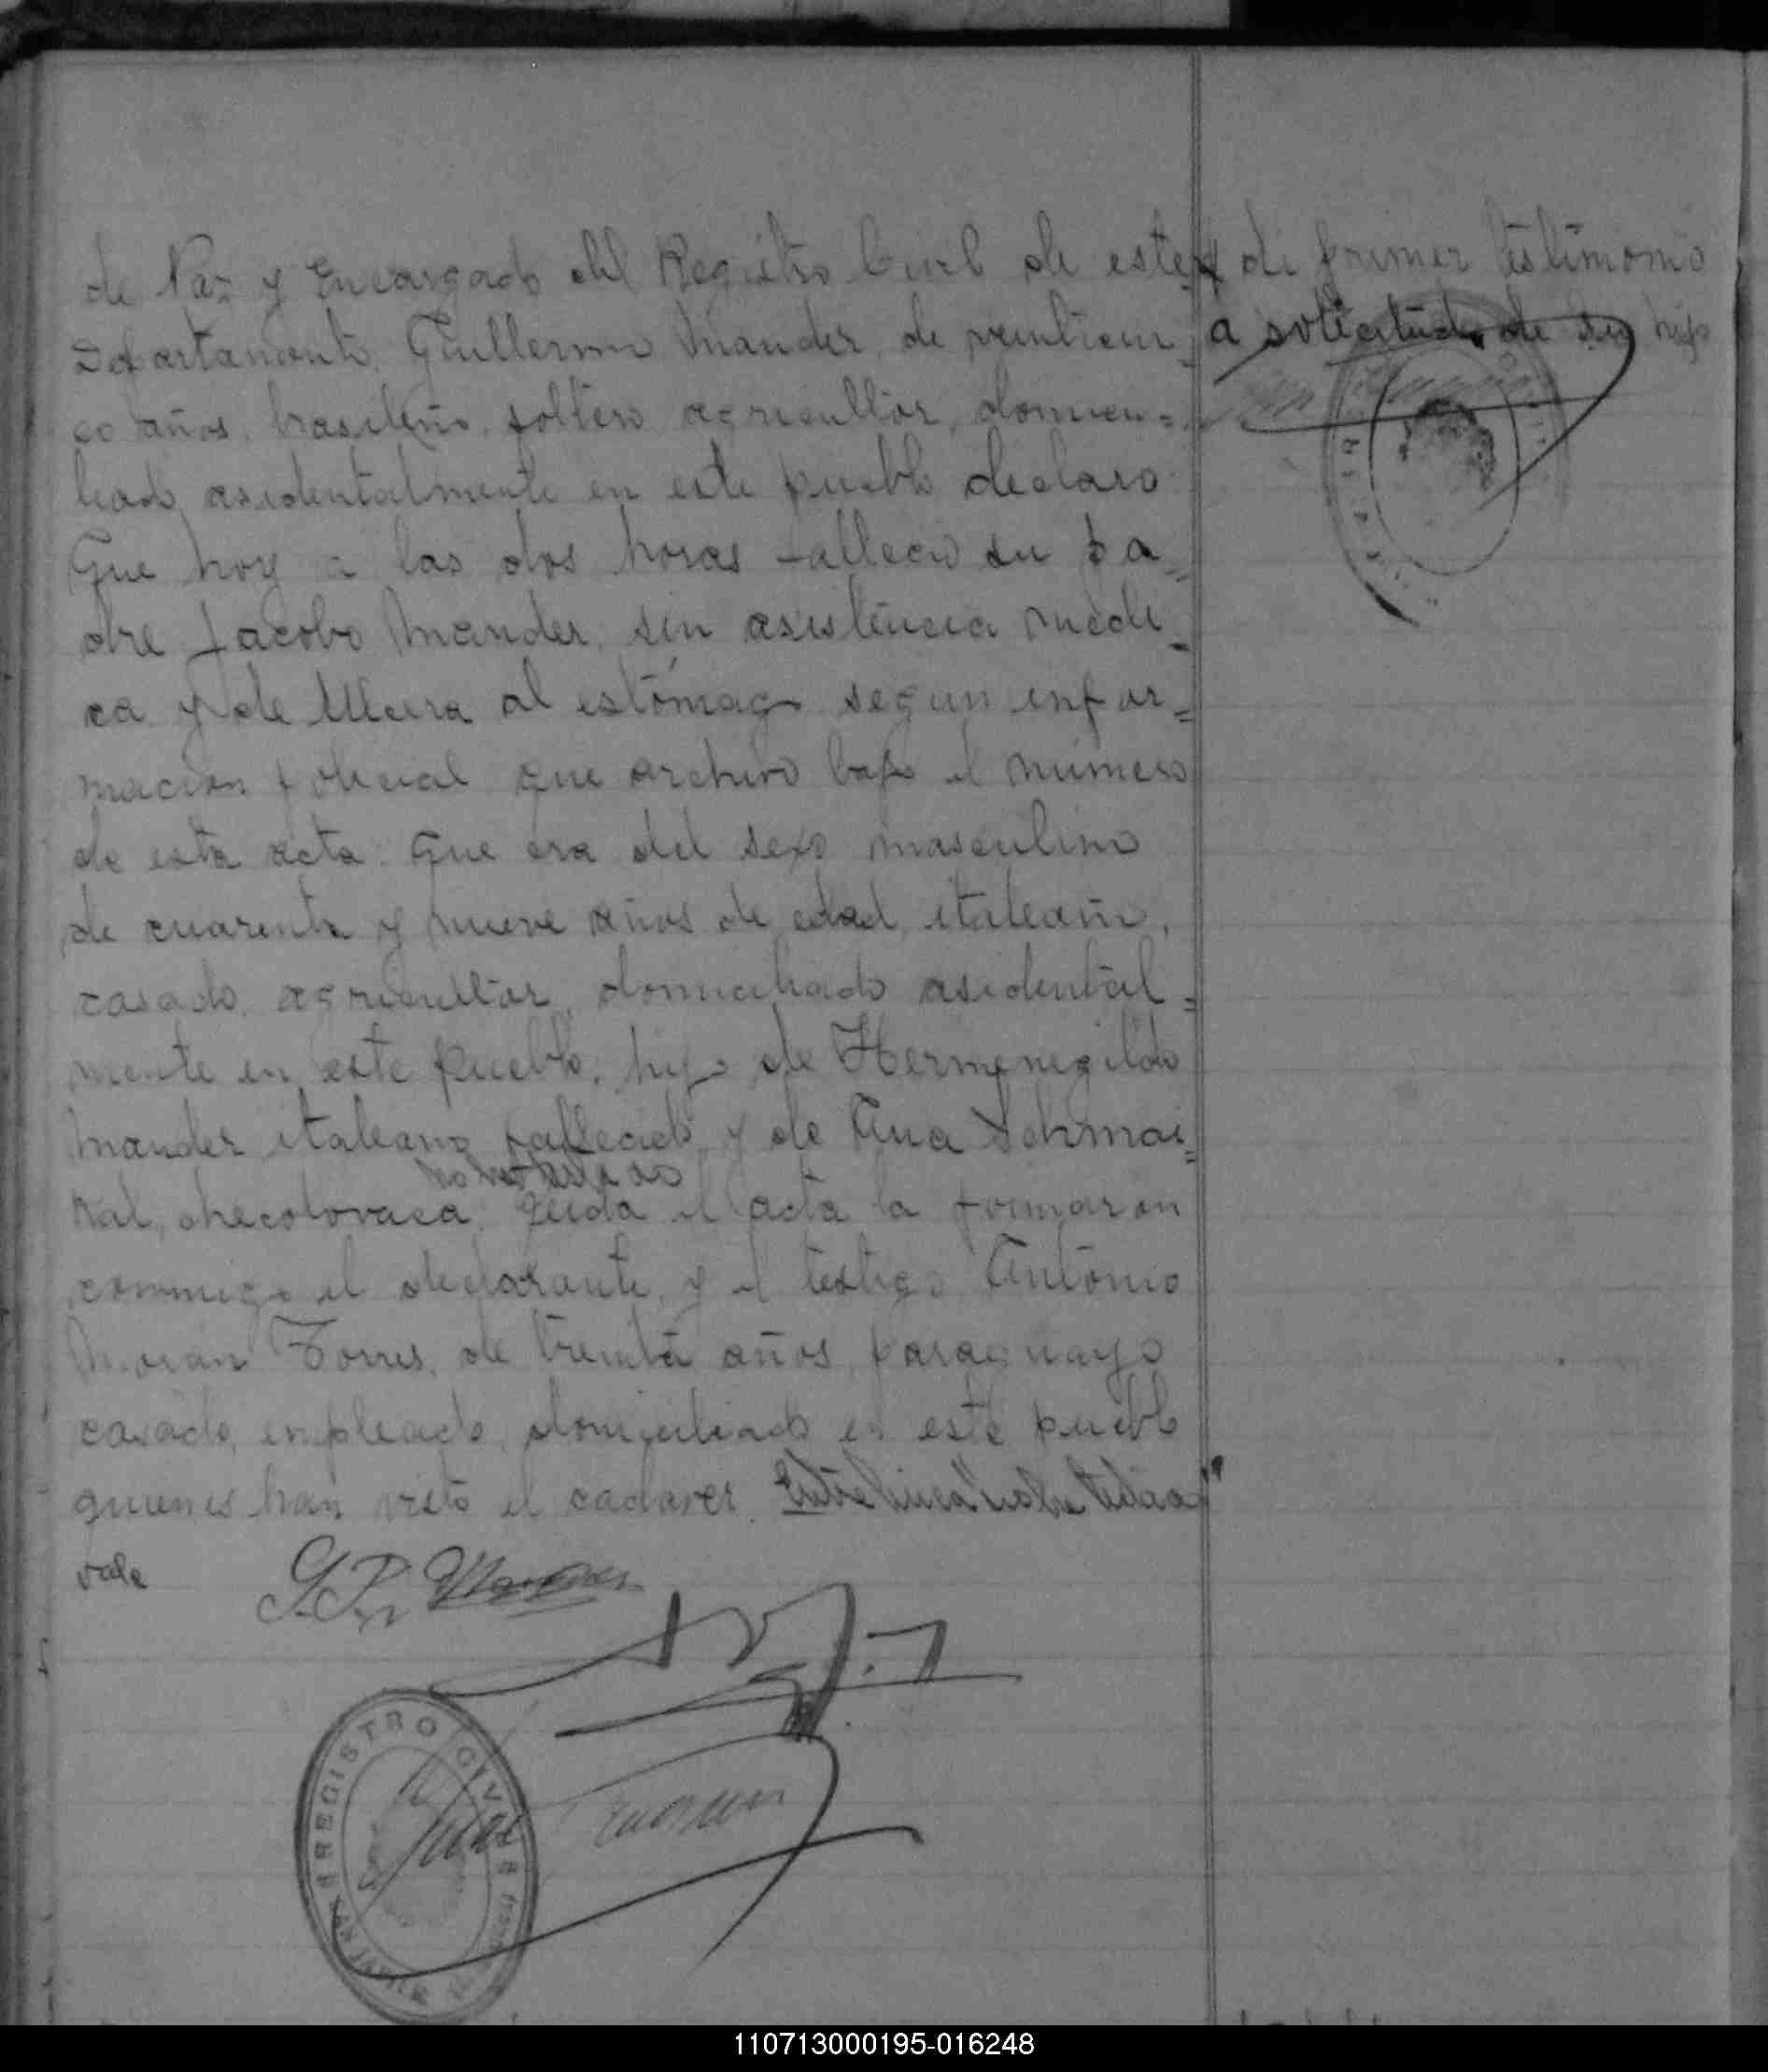 de Paz y Encargado del Registro Civil de este
Departamento. Guillermo Mander, de veinticin
co años, brasileño, soltero agricultor, domici=
liado asidentalmente en este pueblo declaro:
Que hoy a las dos horas fallecio su pa=
dre Jacobo Mander, sin asistencia medi=
ca y de Ulcera al estómago segun infor=
macion policial que archivo bajo el número
de esta acta. Que era del sexo masculino
de cuarenta y nueve años de edad, italeano,
casado, agricultor, domiciliado asidental=
mente en este pueblo, hijo de Hermenegildo
Mander italeano fallecido y de Ana Schmai=
kal, checolovaca. Leida el acta la firmaron
conmigo el declarante, y el testigo Antonio
Moran Torres, de treinta años, paraguayo
casado, empleado, domiciliado en este pueblo
quienes han visto el cadaver. Entre linea
vale
di primer testimonio
a solicitud de su hijo
REGISTRO CIVIL
110713000195-016248